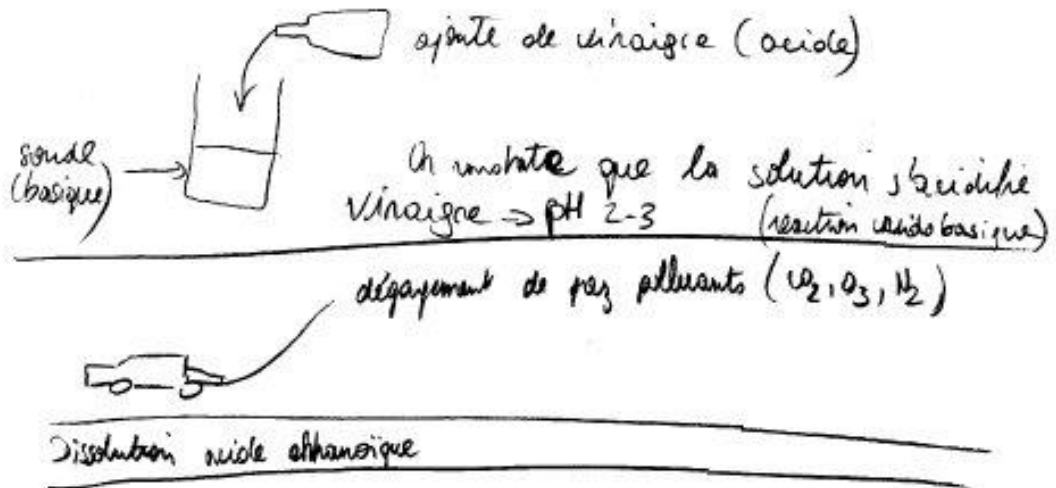 ajoute de vinaigre (acide)
soude
(basique)
On constate que la solution s'acidifie
Vinaigre ⇒ pH 2-3
(reaction acidobasique)
dégagement de gaz polluants (CO2, O3, N2)
Dissolution acide éthanoïque